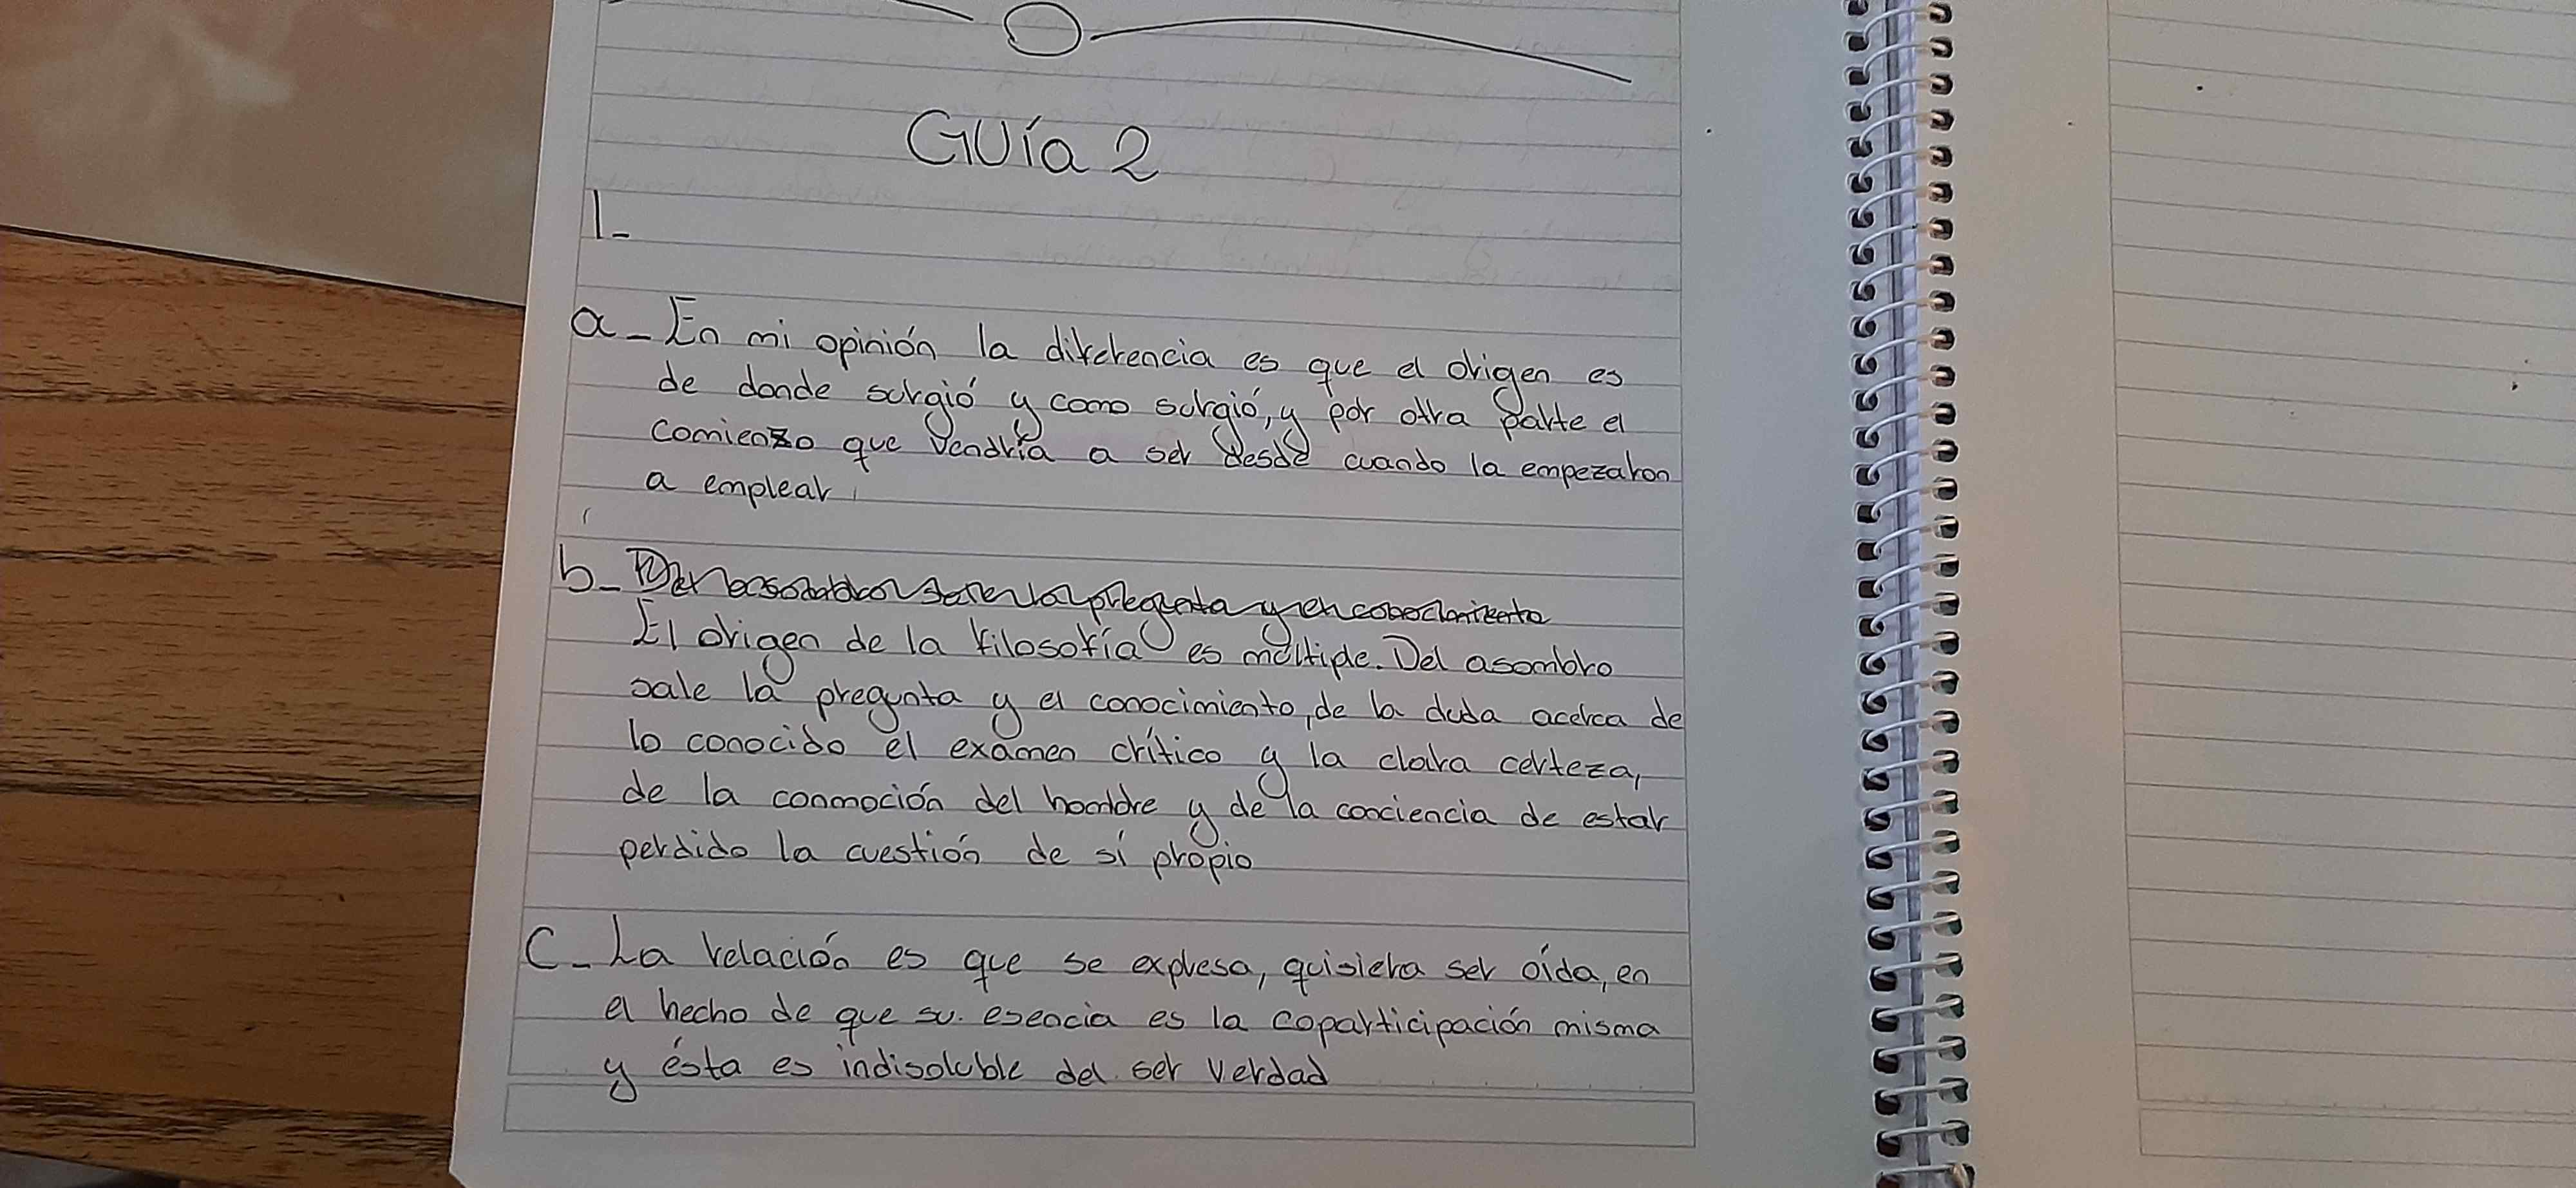 Guía 2
1-
a- En mi opinión la diferencia es que el origen es
de donde surgió y como surgió, y por otra parte el
comienzo que vendría a ser desde cuando la empezaron
a emplear
b- Del asombro sale la pregunta y el conocimiento
El origen de la filosofía es múltiple. Del asombro
sale la pregunta y el conocimiento, de la duda acerca de
lo conocido el examen crítico y la clara certeza,
de la conmoción del hombre y de la conciencia de estar
perdido la cuestión de sí propio
C- La relación es que se expresa, quisiera ser oída, en
el hecho de que su esencia es la coparticipación misma
y ésta es indisoluble del ser verdad